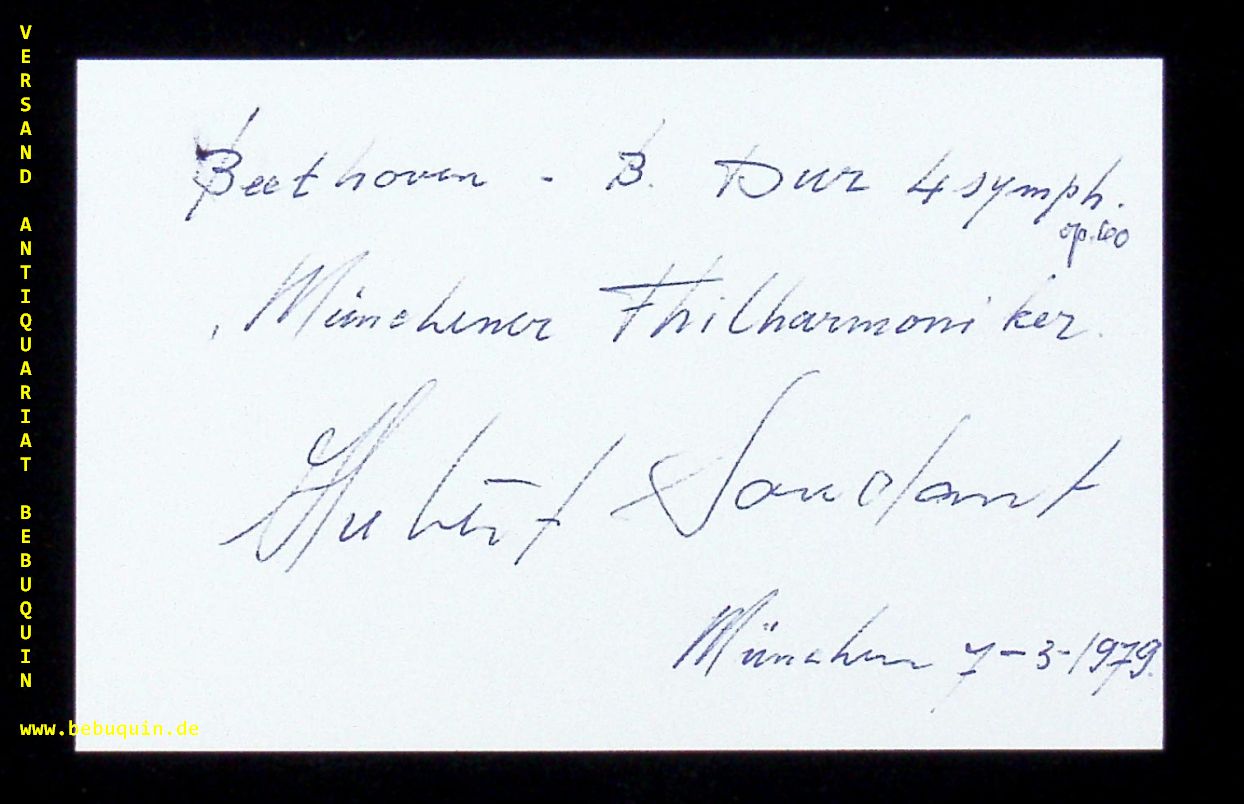 VERSAND ANTIQUARIAT BEBUQUIN
Beethoven - B. Dur 4 symph.
op. 60
Münchener Philharmoniker.
Hubert Soudant
München 7-3-1979.
www.bebuquin.de